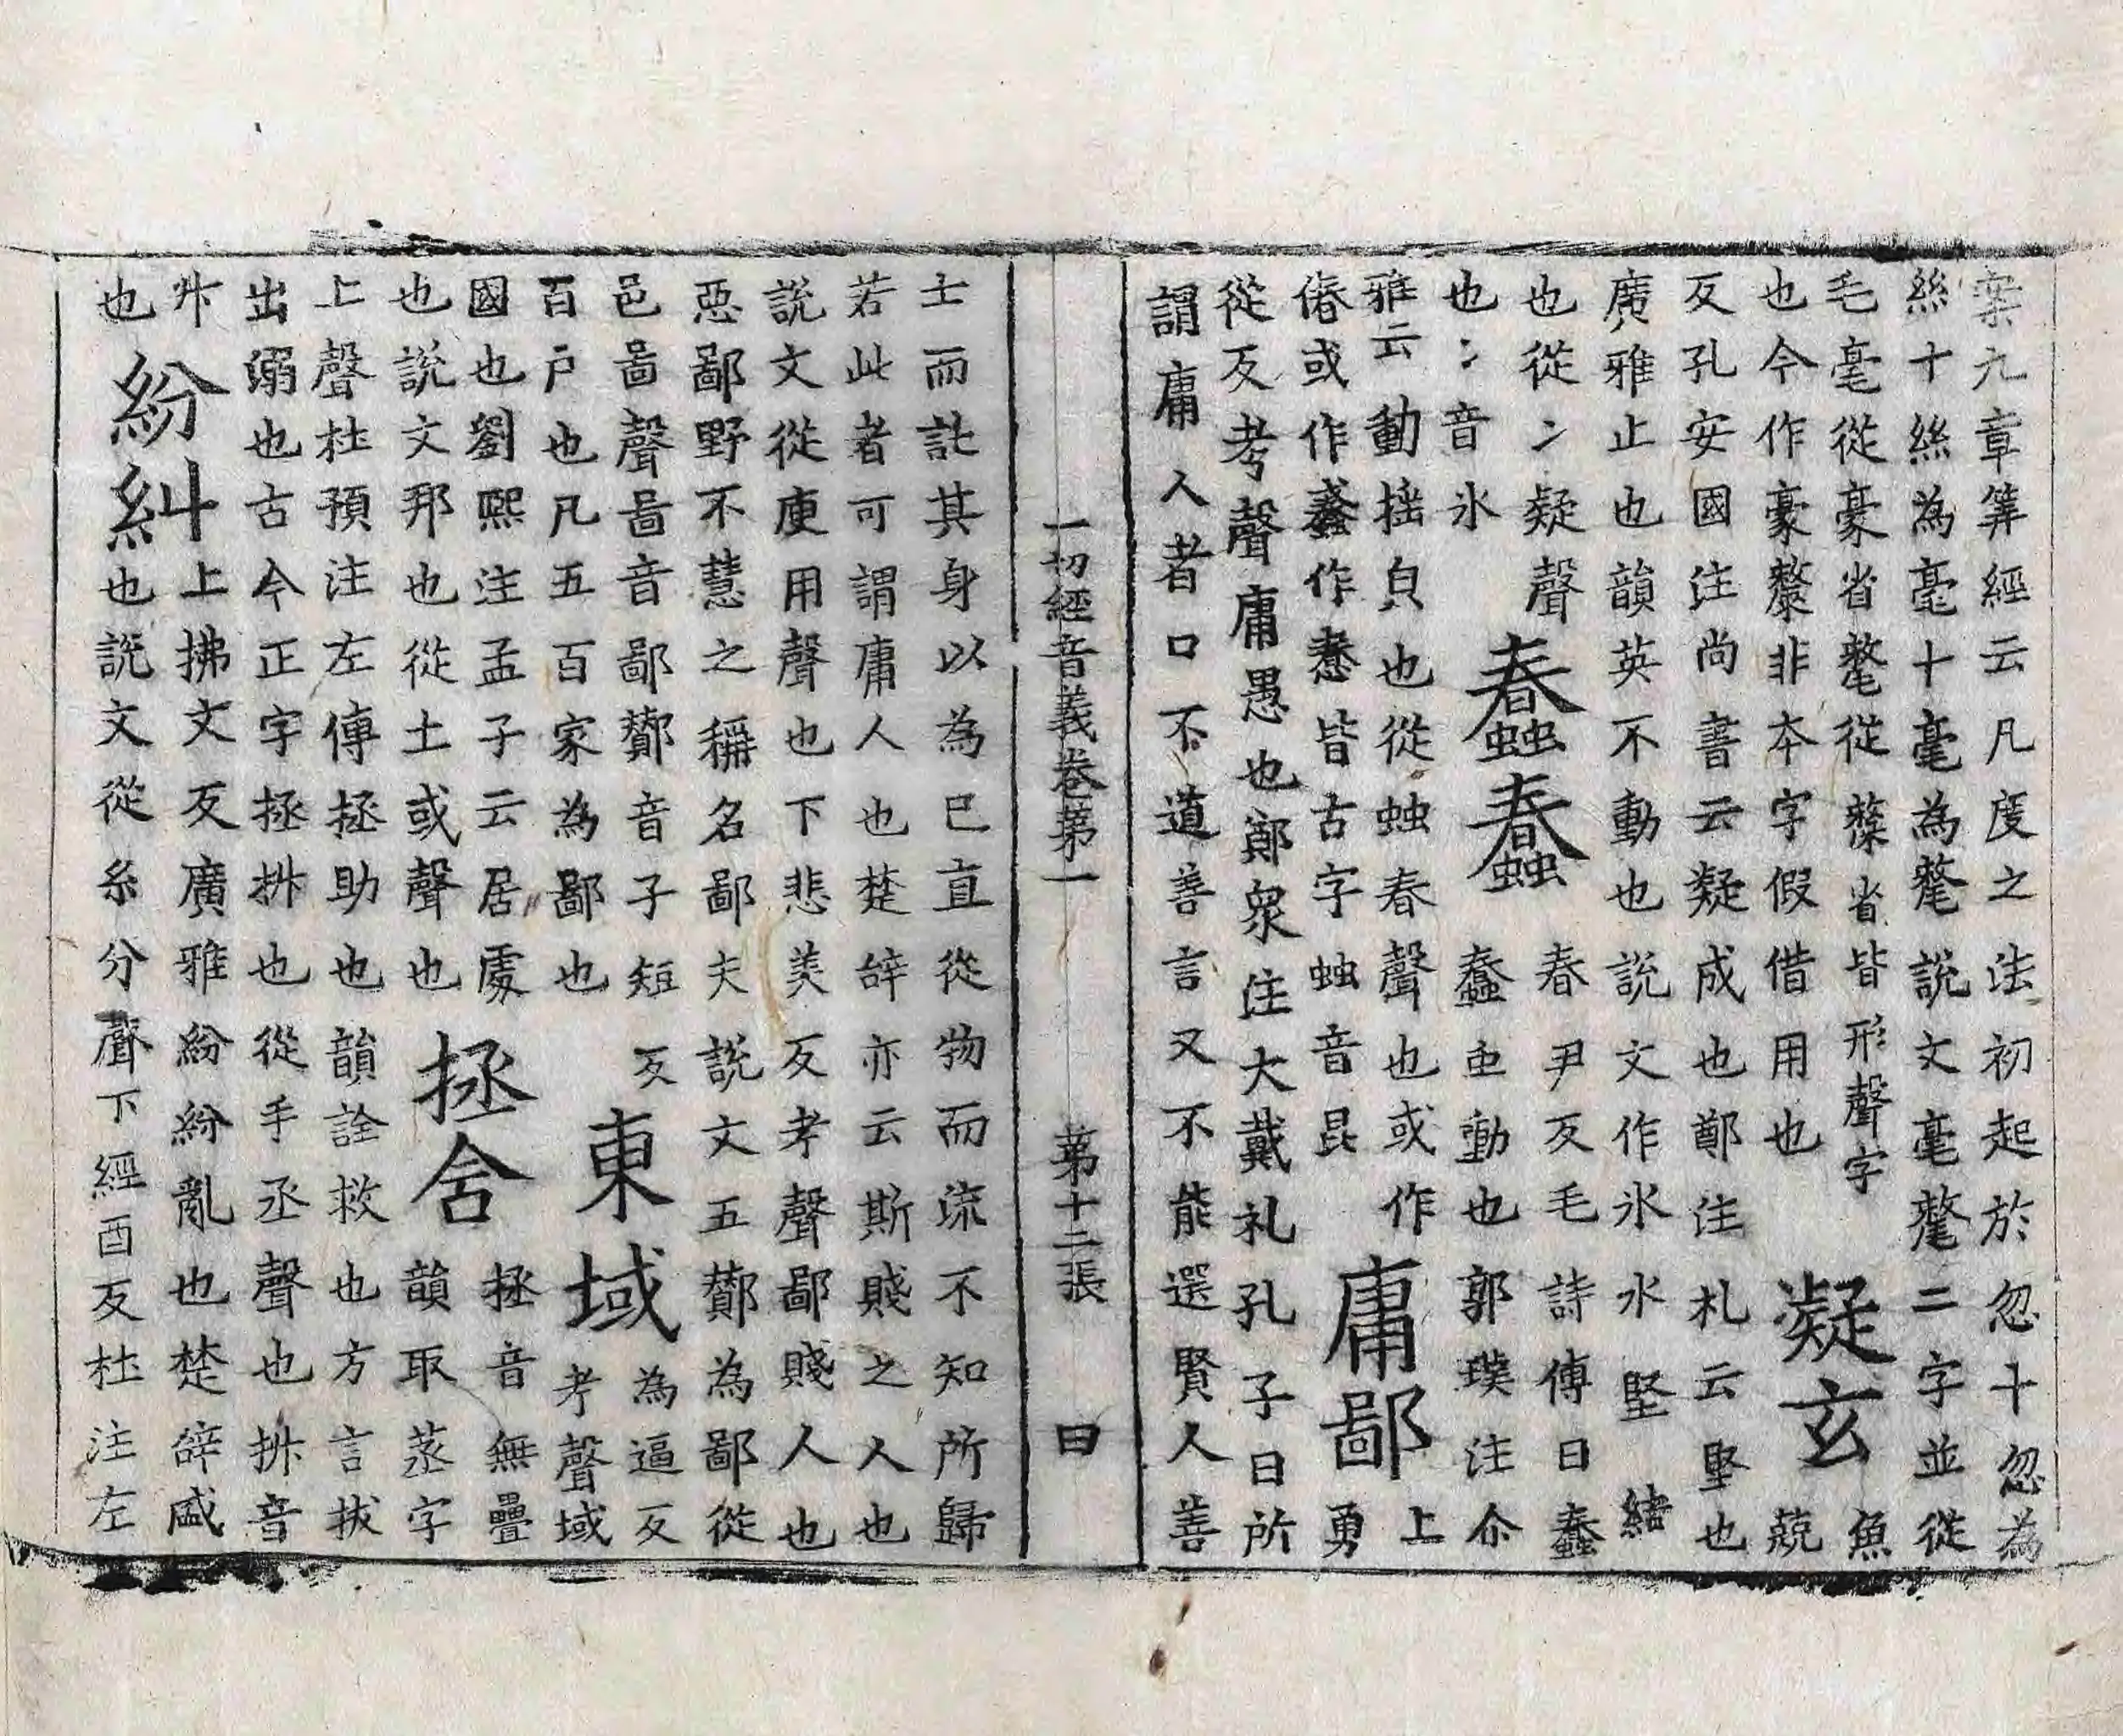 案九章筭經云凡度之法初起於忽十忽為
絲十絲為毫十毫為氂說文毫氂二字並從
毛毫從豪省氂從𠩺省皆形聲字
也今作豪釐非本字假借用也
凝玄
魚
兢
反孔安國注尚書云凝成也鄭注札云堅也
廣雅止也韻英不動也說文作氷水堅結
也從冫疑聲
也冫音氷
蠢蠢
春尹反毛詩傳曰蠢
蠢䖝動也郭璞注尒
雅云動揺皃也從䖵春聲也或作
偆或作作惷皆古字䖵音昆
庸鄙
上
勇
從反考聲庸愚也鄭衆注大戴礼孔子曰所
謂庸人者口不道善言又不能選賢人善
一切經音義卷苐一 苐十二張 曰
士而託其身以為己直從物而流不知所歸
若此者可謂庸人也楚辝亦云斯賤之人也
說文從庚用聲也下悲美反考聲鄙賤人也
惡鄙野不慧之稱名鄙夫說文五酇為鄙從
邑啚聲啚音鄙酇音子短反
百户也凡五百家為鄙也
東域
為逼反
考聲域
國也劉熈注孟子云居處
也說文邦也從土或聲也
拯含
拯音無疊
韻取蒸字
上聲杜預注左傳拯助也韻詮救也方言拔
出溺也古今正字拯拼也從手丞聲也拼音
升
也
紛糾
上拂文反廣雅紛紛亂也楚辝盛
也說文從糸分聲下經酉反杜注左